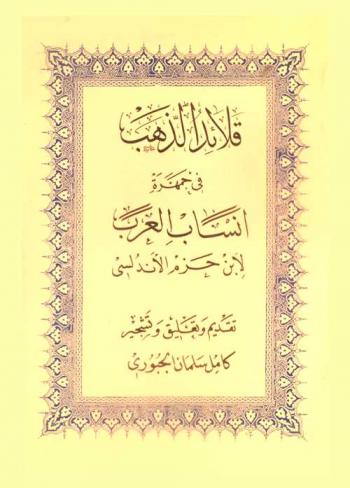 قلائد الذهب
في جمهرة
انساب العرب
لابن حزم الاندلسي
تقديم وتعليق وتشجير
كامل سلمان الجبوري